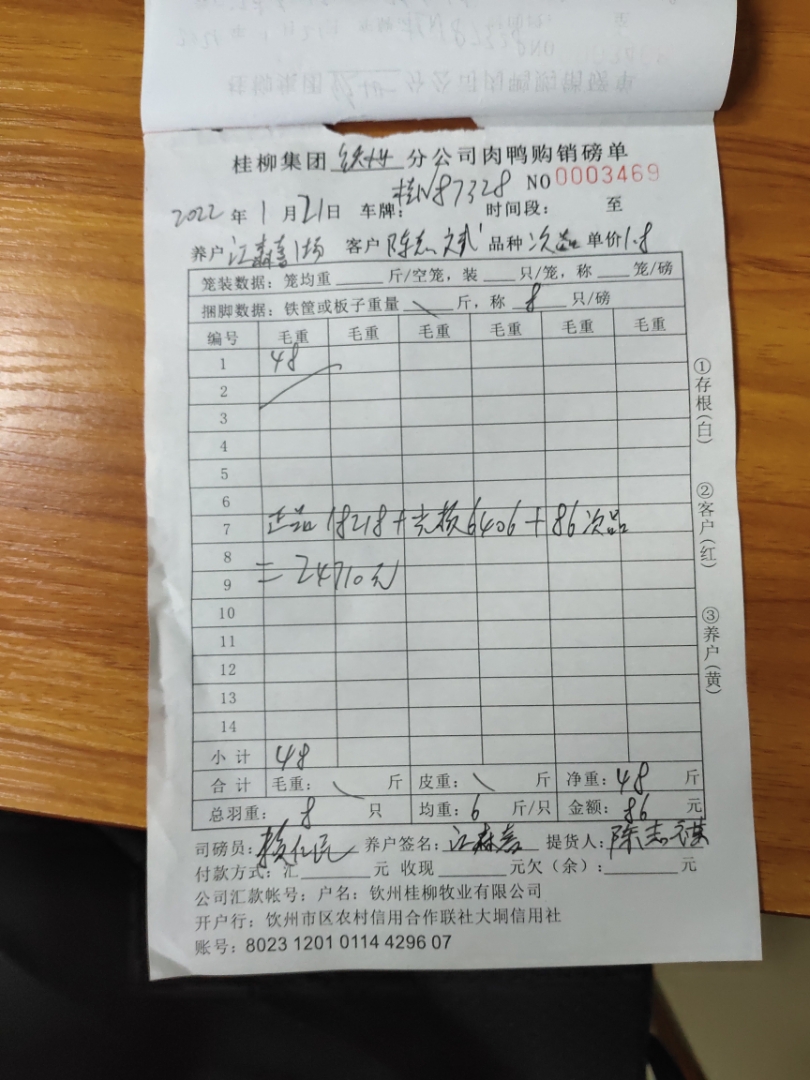 桂柳集团 钦州 分公司肉鸭购销磅单
桂N87328 NO 0003469
2022 年 1 月 21 日 车牌: 时间段: 至
养户 江森喜1场 客户 陈志斌 品种 次品 单价 1.8
笼装数据: 笼均重 斤/空笼, 装 只/笼, 称 笼/磅
捆脚数据: 铁筐或板子重量 \ 斤, 称 8 只/磅
编号 毛重 毛重 毛重 毛重 毛重 毛重
1 48
2
3
4
5
6
7 正品 18218 + 6406 + 86 次品
8
9 = 24710元
10
11
12
13
14
小计 48
合计 毛重: \ 斤 皮重: \ 斤 净重: 48 斤
总羽重: 8 只 均重: 6 斤/只 金额: 86 元
司磅员: 养户签名: 江森喜 提货人: 陈志
付款方式: 汇 元 收现 元欠(余): 元
公司汇款帐号: 户名: 钦州桂柳牧业有限公司
开户行: 钦州市区农村信用合作联社大垌信用社
账号: 8023 1201 0114 4296 07
①存根(白)
②客户(红)
③养户(黄)